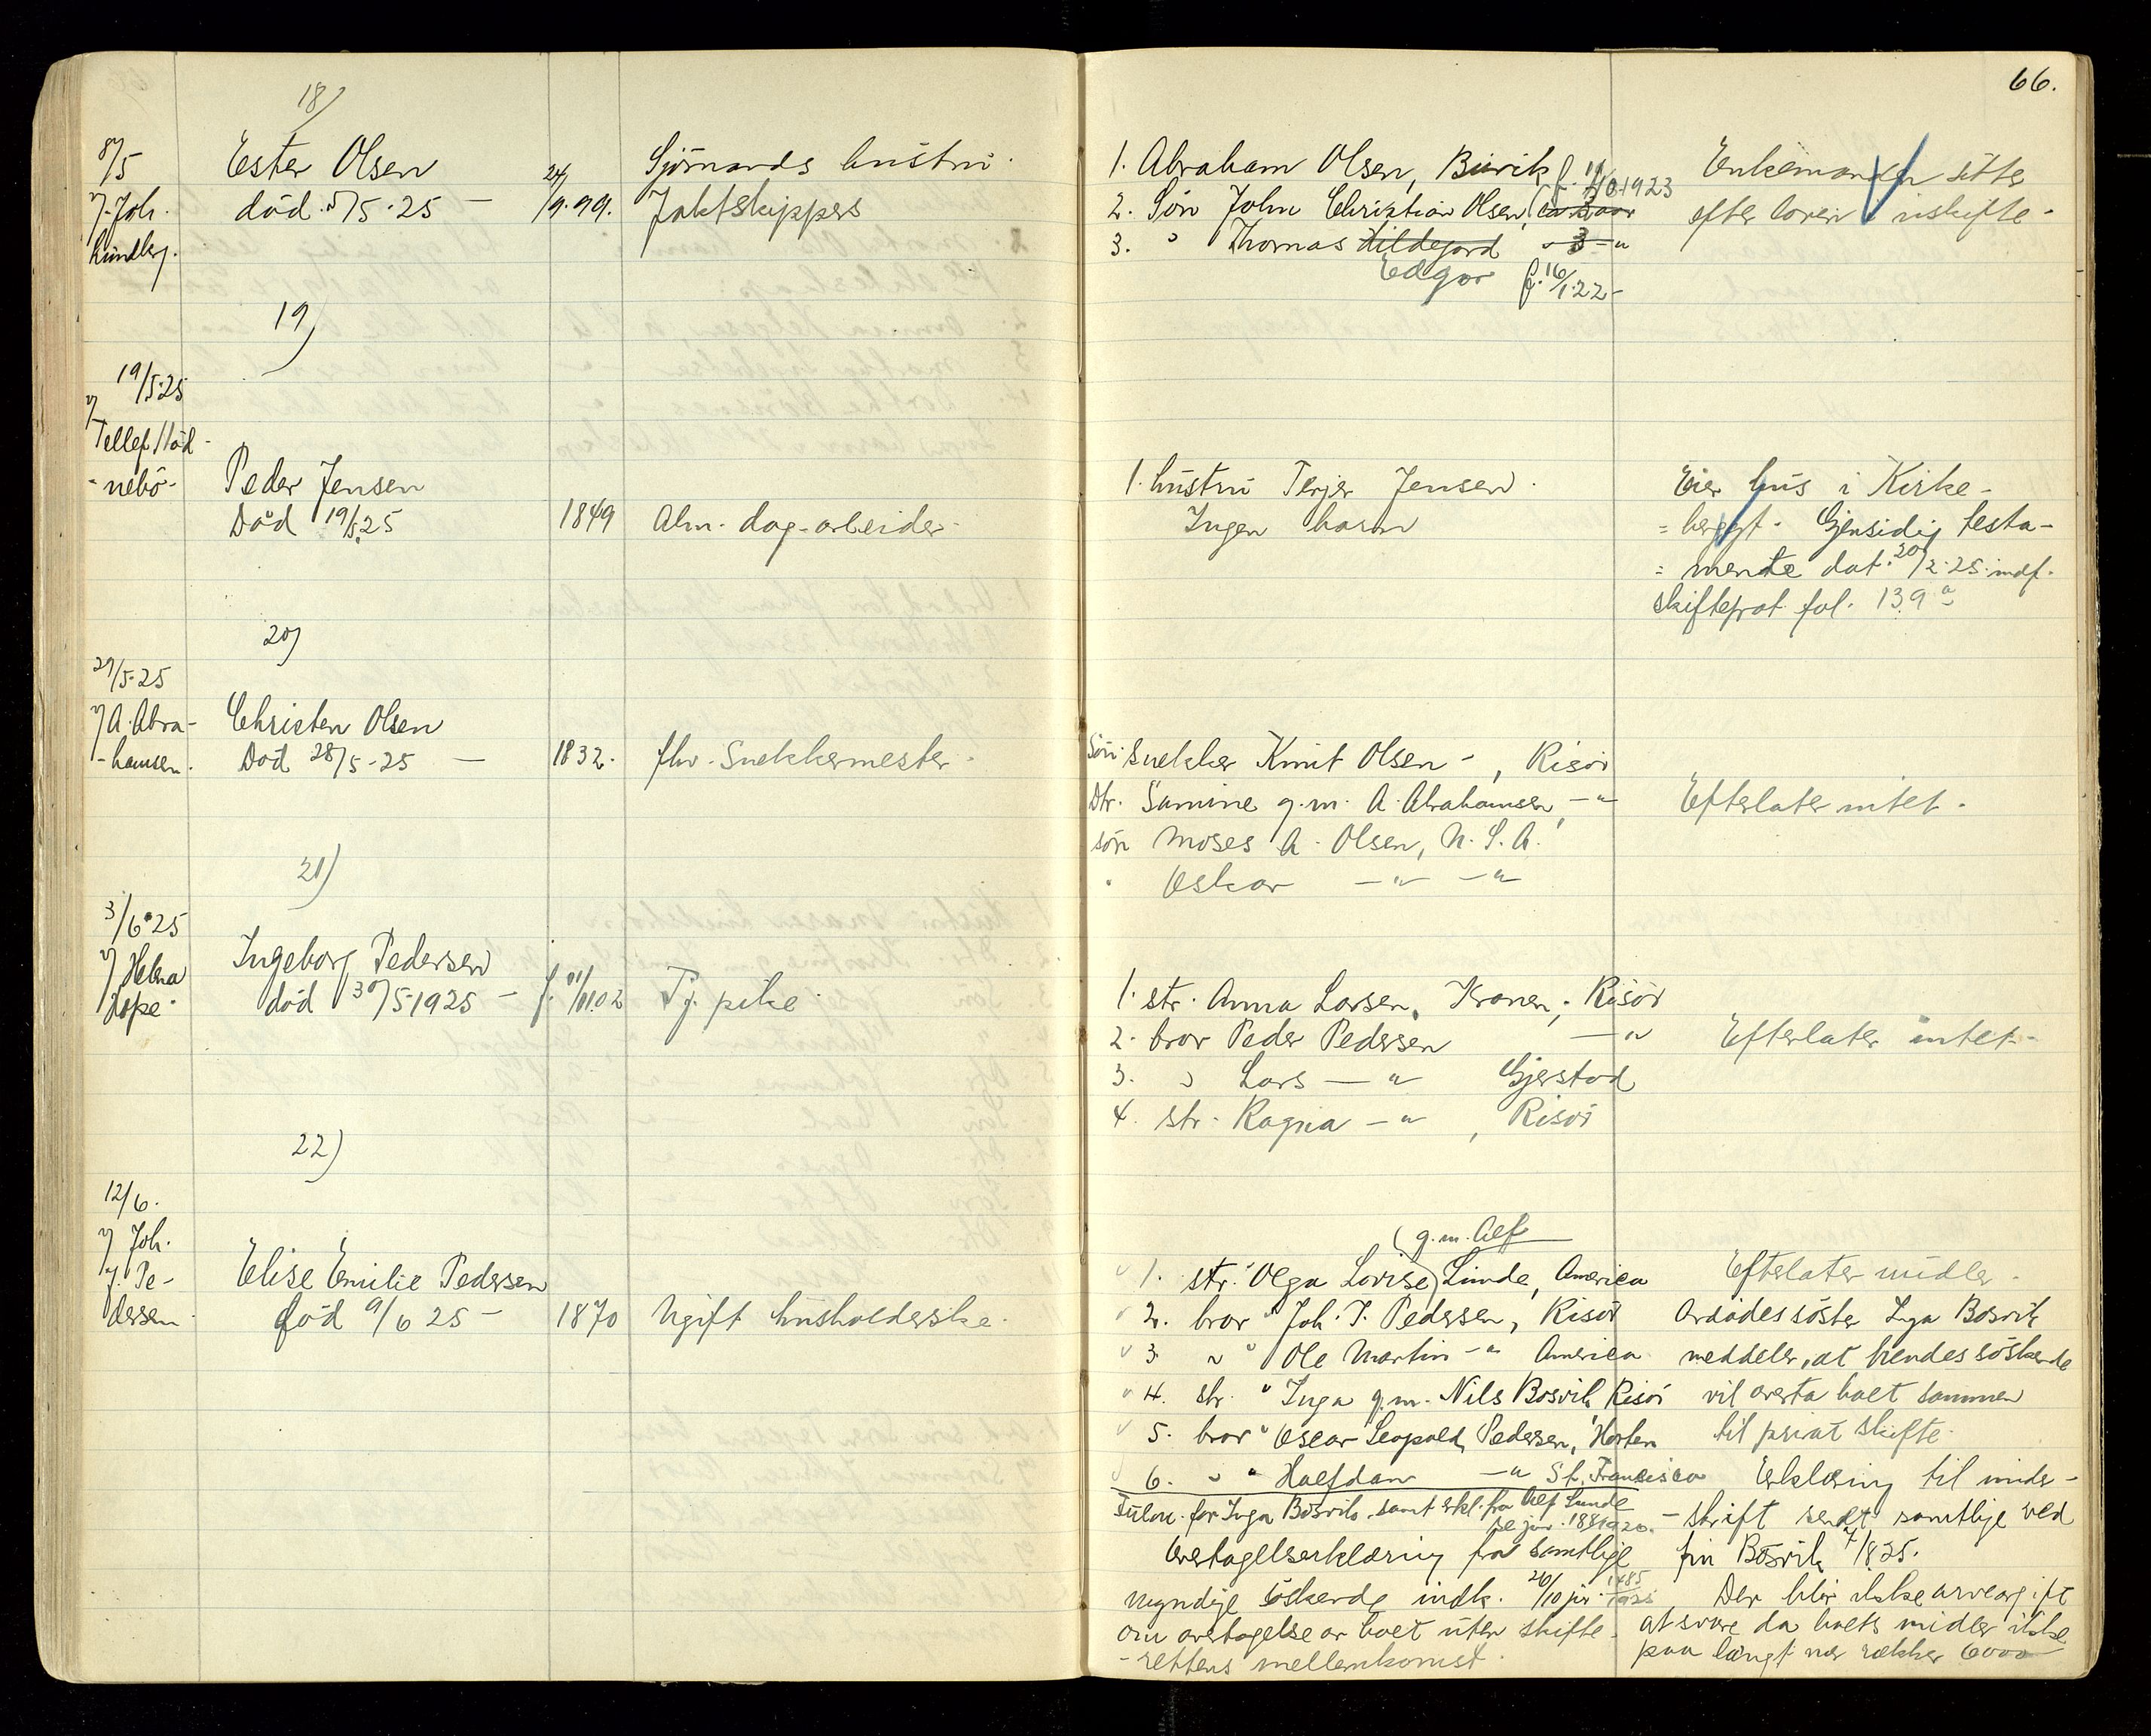 66.
18)
8/5
v/ Joh.
Lundberg.
Ester Olsen
död 5/5-25 -
24/9.99.
Sjömands hustru.
Jaktskippers
1. Abraham Olsen, Buvik
2. Sön John Christian Olsen, f. 11/10 1923
3. " Thomas Hildegard " 3 "
Edgar f. 16/1.22-
Enkemanden sitter
efter loven i uskifte.
19)
19/5.25
v/
Tellef Röd-
-nebö-
Peder Jensen
Död 19/5.25
1849
Alm. dag-arbeider.
1. hustru Terjer Jensen.
Ingen barn
Eier hus i Kirke-
= bergt. Gjensidig testa-
= mente dat. 20/2.25. indf.
skifteprot. fol. 139 a
20)
29/5.25
v/ A. Abra-
-hamsen.
Christen Olsen
Död 28/5-25 -
1832.
fhv. Snekkermester.
Sön. Snekker Knut Olsen -, Risör
Dtr. Samine g.m. A. Abrahamsen, - "
sön Moses A. Olsen, U.S.A.
" Oskar - " - "
Efterlater intet.
21)
3/6.25
v/ Helena
Lope.
Ingeborg Pedersen
död 30/5.1925 -
f. 11/11.02
Tj. pike.
1. str. Anna Larsen, Kranen, Risör
2. bror Peder Pedersen - "
3. " Lars - " Gjerstad
4. str. Ragna - ", Risör
Efterlater intet.
22)
12/6.
v/ Joh.
J. Pe-
dersen
Elise Emilie Pedersen
död 9/6 25 -
1870
Ugift husholderske.
(g.m. Alf
1. str. Olga Lovise) Linde, America
2. bror " Joh. J. Pedersen, Risör
3. " " Ole Martin - " America
4. str. " Inga g.m. Nils Bosvik Risör
5. bror " Oscar Leopold Pedersen, Horten
6. " " Halfdan - " St. Francisco
Fuldm. for Inga Bosvik samt erkl. fra Alf Linde
se jour. 1881920.
Overtagelseserklæring fra samtlige
myndige söskende indk. 26/10 jur. 1485/1925
om overtagelse av boet uten skifte-
-rettens mellemkomst.
Efterlater midler.
Avdödes söster Inga Bosvik
meddeler, at hendes söskende
vil overta boet sammen
til privat skifte.
Erklæring til under-
- skrift sendt samtlige ved
fru Bosvik 4/8 25.
Der blir ikke arveavgift
at svare da boets midler ikke
paa langt nær rækker 6000